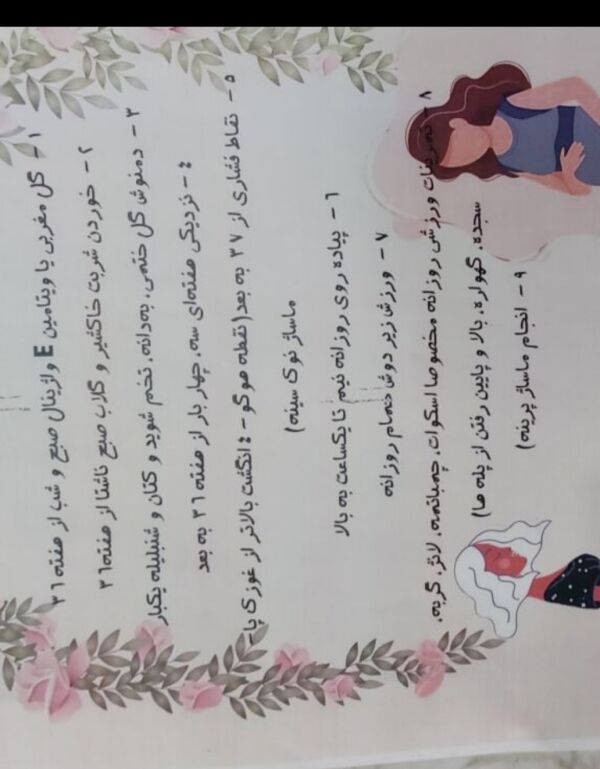 ۱- گل مغربی یا ویتامین E واژینال صبح و شب از هفته ۳۶
۲- خوردن شربت خاکشیر و گلاب صبح ناشتا از هفته ۳۶
۳- دمنوش گل ختمی، به‌دانه، تخم شوید و کتان و شنبلیله یکبار
۴- نزدیکی هفته‌ای سه، چهار بار از هفته ۳۶ به بعد
۵- نقاط فشاری از ۳۷ به بعد (نقطه هوگو - ۴ انگشت بالاتر از غوزک پا-
ماساژ نوک سینه)
۶- پیاده روی روزانه نیم تا یکساعت به بالا
۷- ورزش زیر دوش حمام روزانه
۸- تمرینات ورزشی روزانه مخصوصا اسکوات، چمباتمه، لانژ، گربه،
سجده، گهواره، بالا و پایین رفتن از پله ها)
۹- انجام ماساژ پرینه)